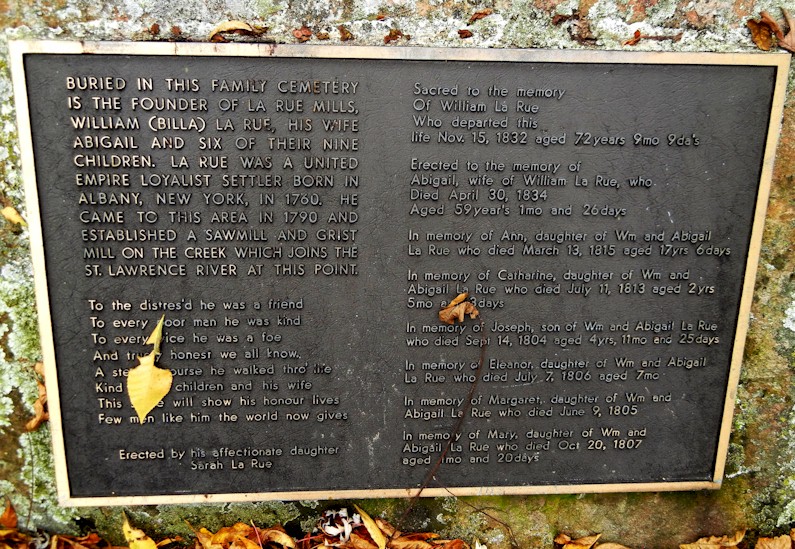 BURIED IN THIS FAMILY CEMETERY
IS THE FOUNDER OF LA RUE MILLS,
WILLIAM (BILLA) LA RUE, HIS WIFE
ABIGAIL AND SIX OF THEIR NINE
CHILDREN. LA RUE WAS A UNITED
EMPIRE LOYALIST SETTLER BORN IN
ALBANY, NEW YORK, IN 1760. HE
CAME TO THIS AREA IN 1790 AND
ESTABLISHED A SAWMILL AND GRIST
MILL ON THE CREEK WHICH JOINS THE
ST. LAWRENCE RIVER AT THIS POINT.
To the distres'd he was a friend
To every poor man he was kind
To every vice he was a foe
And truly honest we all know,
A course he walked thro' life
Kind children and his wife
This will show his honour lives
Few men like him the world now gives
Erected by his affectionate daughter
Sarah La Rue
Sacred to the memory
Of William La Rue
Who departed this
life Nov. 15, 1832 aged 72years 9mo 9da's
Erected to the memory of
Abigail, wife of William La Rue, who
Died April 30, 1834
Aged 59year's 1mo and 26days
In memory of Ann, daughter of Wm and Abigail
La Rue who died March 13, 1815 aged 17yrs 6days
In memory of Catharine, daughter of Wm and
Abigail La Rue who died July 11, 1813 aged 2yrs
5mo and days
In memory of Joseph, son of Wm and Abigail La Rue
who died Sept 14, 1804 aged 4yrs, 11mo and 25days
In memory of Eleanor, daughter of Wm and Abigail
La Rue who died July 7, 1806 aged 7mo
In memory of Margaret, daughter of Wm and
Abigail La Rue who died June 9, 1805
In memory of Mary, daughter of Wm and
Abigail La Rue who died Oct 20, 1807
aged 1mo and 20days